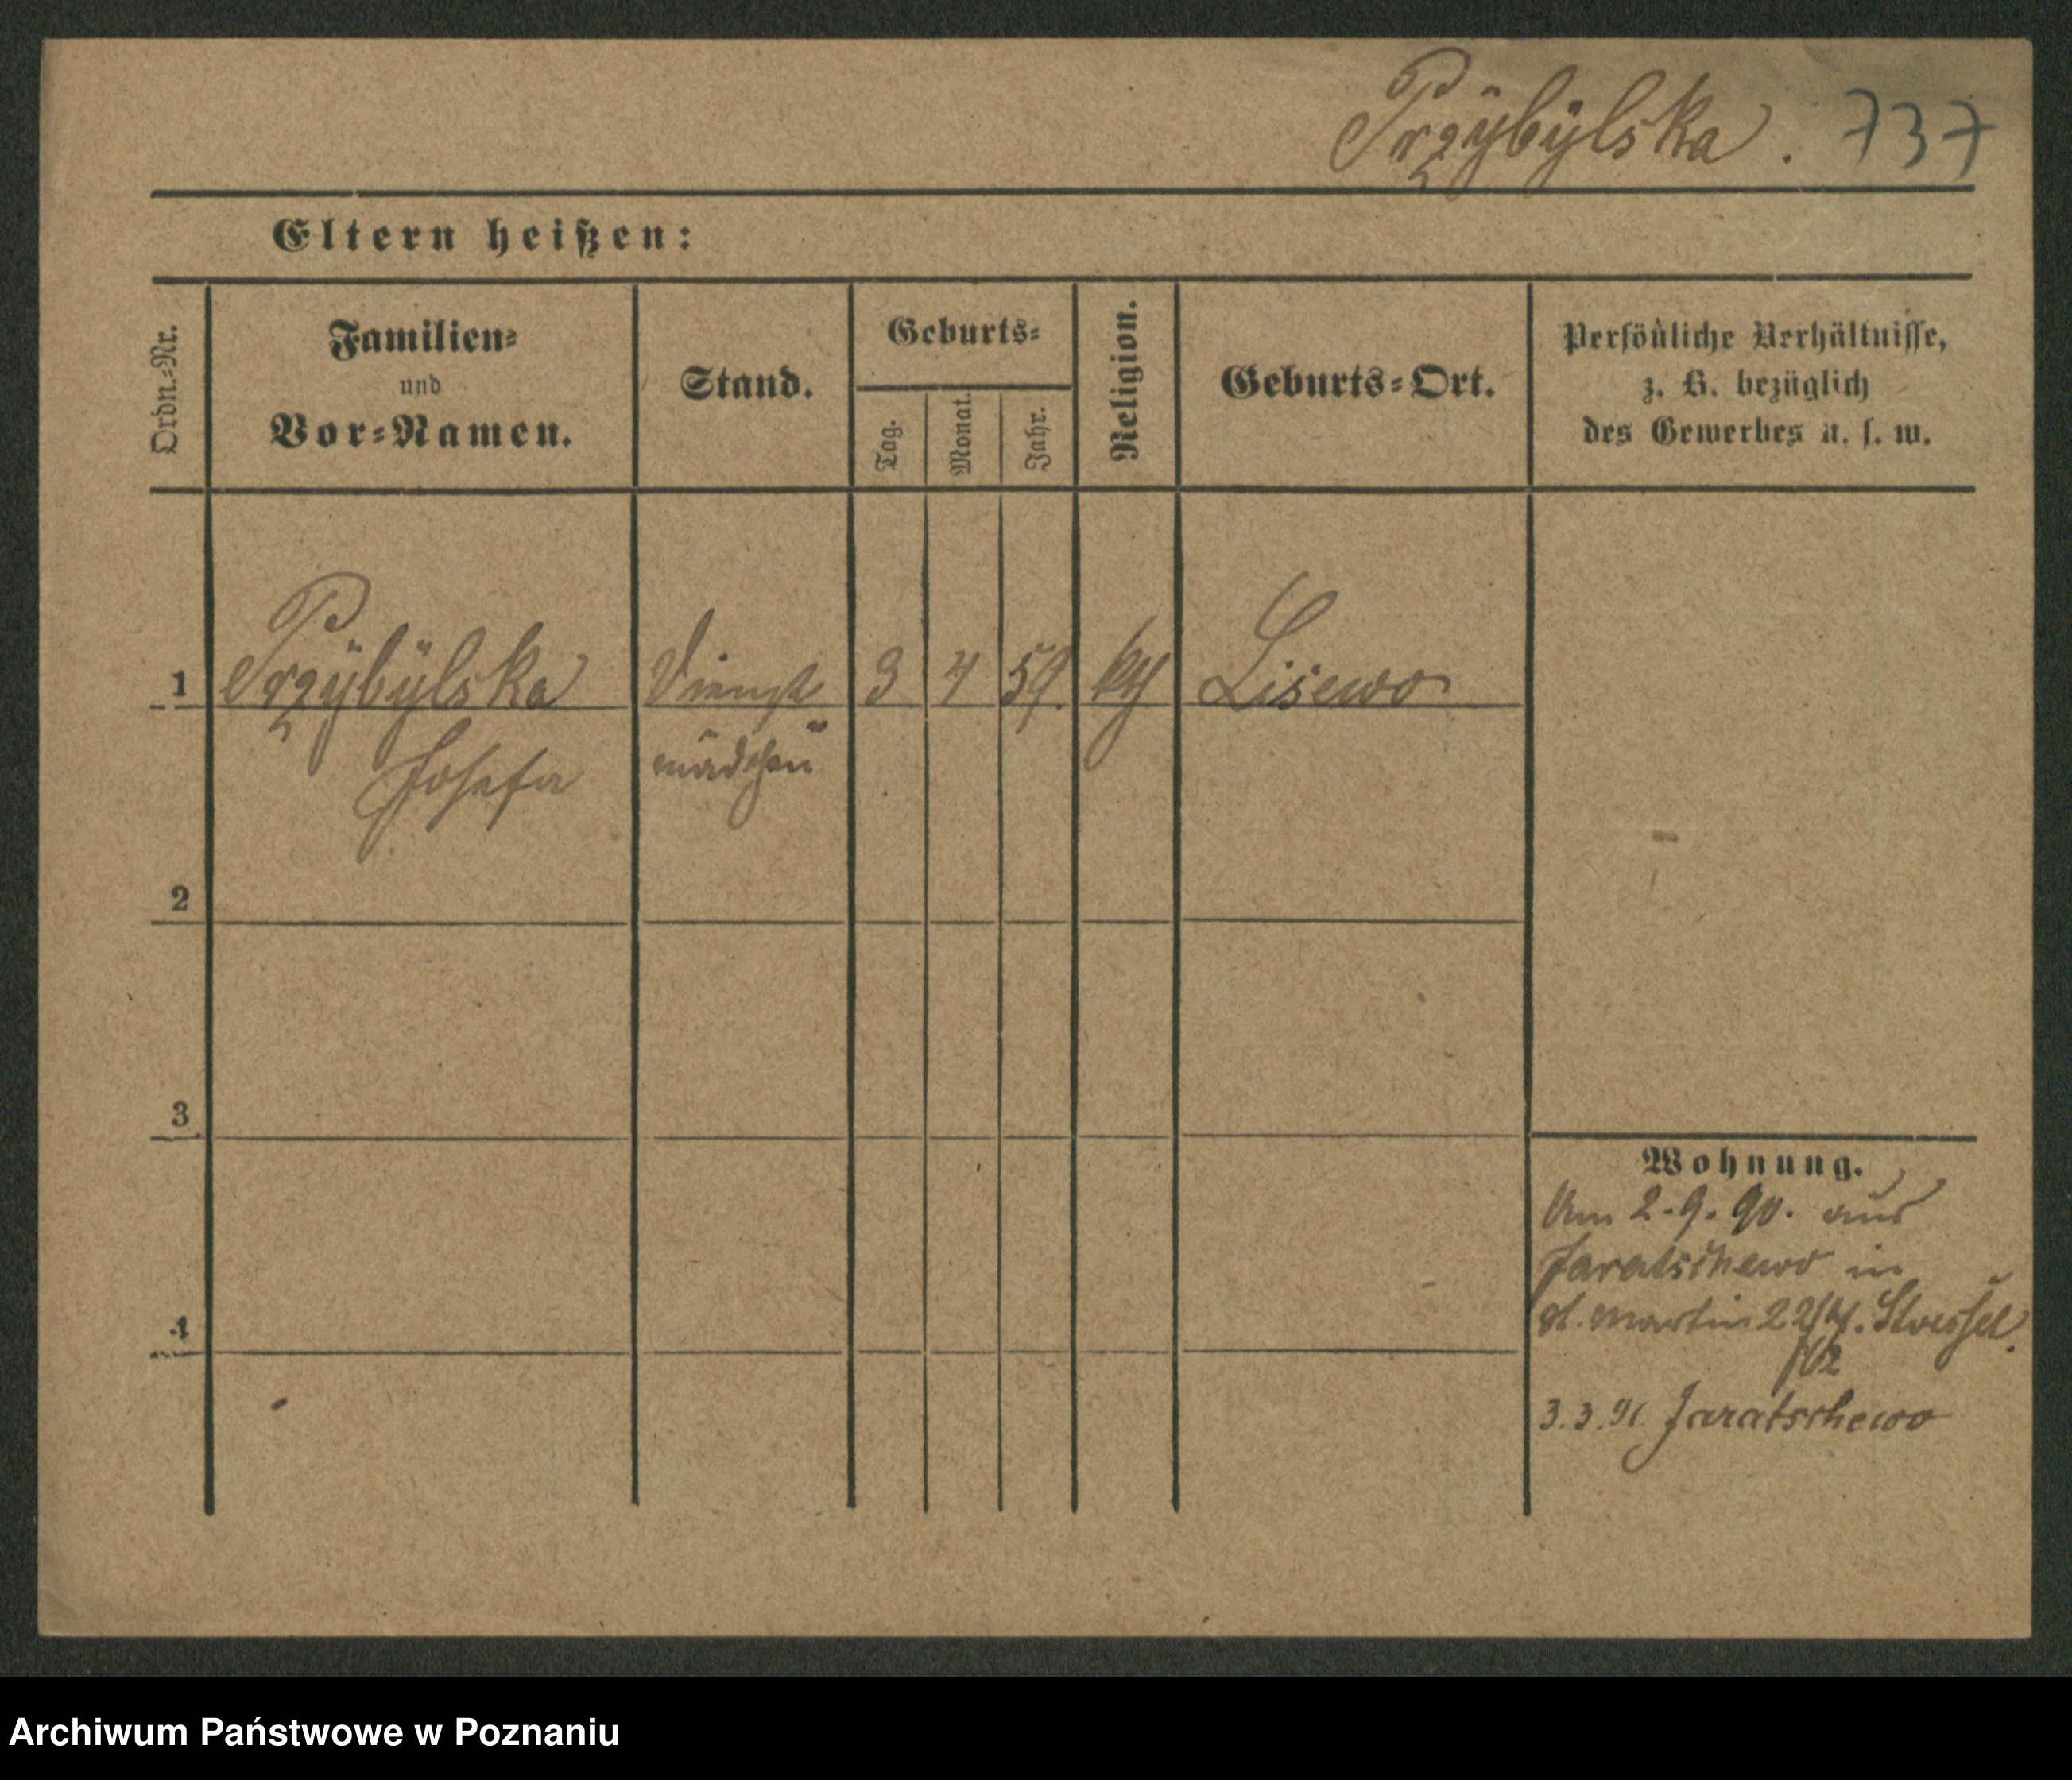 Przÿbÿlska. 737
Eltern heißen:
Ordn.-Nr.
Familien-
und
Vor-Namen.
Stand.
Geburts-
Tag.
Monat.
Jahr.
Religion.
Geburts-Ort.
Persönliche Verhältnisse,
z. B. bezüglich
des Gewerbes u. s. w.
1 Przÿbÿlska Dienst 3 4 59. Lisewo
Josefa mädchen
2
3
4
Wohnung.
Am 2.9.90. aus
Jaratschewo in
St. Martin
3.3.91 Jaratschewo
Archiwum Państwowe w Poznaniu